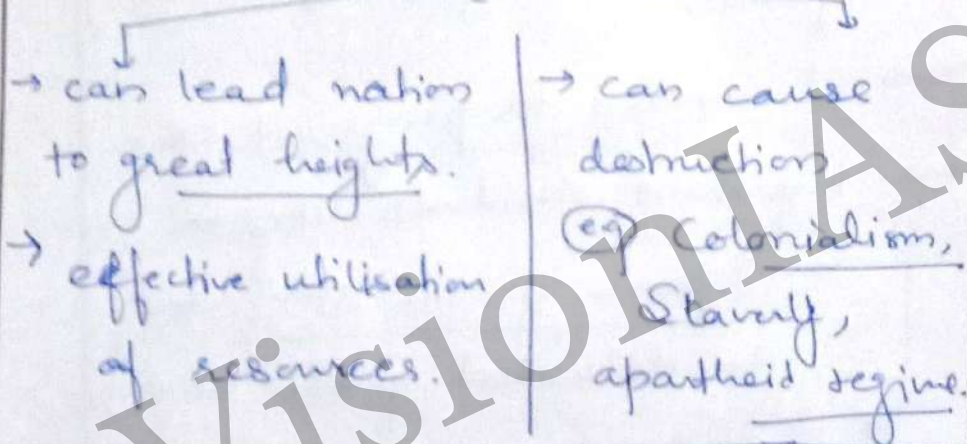 → can lead nation
to great heights.
→ effective utilisation
of resources.
→ can cause
destruction
eg Colonialism,
Slavery,
apartheid regime.
VisionIAS